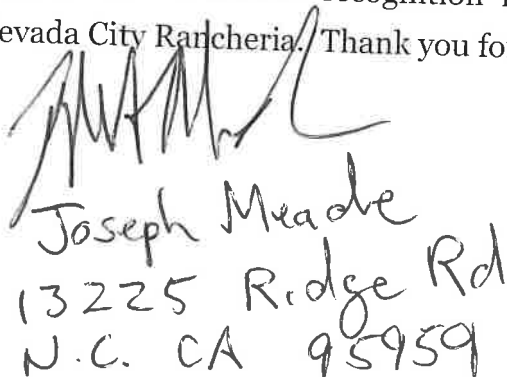 recognition
evada City Rancheria. Thank you fo
Joseph Meade
13225 Ridge Rd
N.C. CA 95959